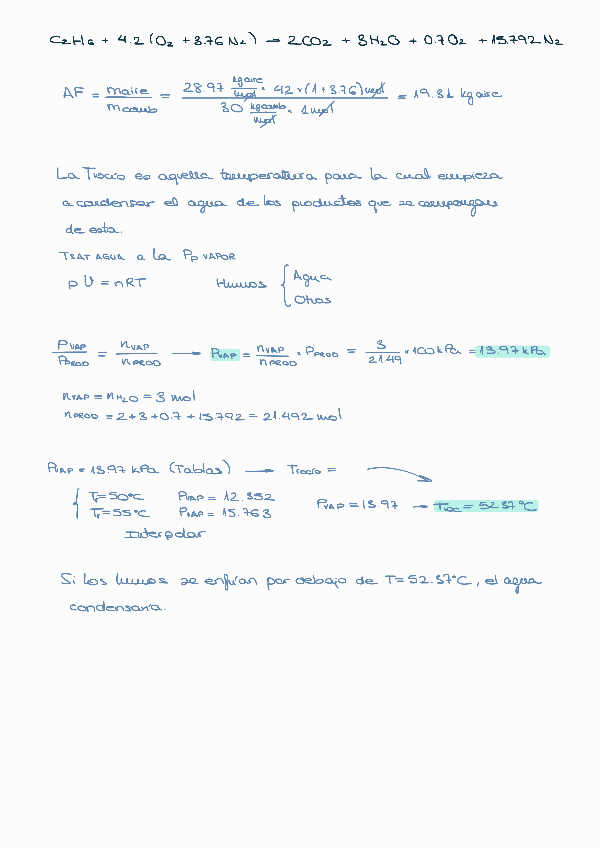 C2H6 + 4.2 (O2 + 3.76 N2) → 2CO2 + 3H2O + 0.7O2 + 15.792 N2
AF = maire / mcomb = 28.97 kgaire/mol · 4.2 × (1+3.76) mol / 30 kgcomb/mol · 1 mol = 19.31 kg aire
La Trocío es aquella temperatura para la cual empieza
a condensar el agua de los productos que se compongan
de esta.
TSAT AGUA a la Pp VAPOR
pV = nRT Humos { Agua
Otros
PVAP / PPROD = nVAP / nPROD → PVAP = nVAP / nPROD · PPROD = 3 / 21.49 × 100 kPa = 13.97 kPa
nVAP = nH2O = 3 mol
nPROD = 2+3+0.7+15.792 = 21.492 mol
PVAP = 13.97 kPa (Tablas) → Trocío =
{ T1=50°C PVAP = 12.352
T2=55°C PVAP = 15.763 PVAP = 13.97 → Troc = 52.37°C
Interpolar
Si los humos se enfrían por debajo de T=52.37°C, el agua
condensaría.